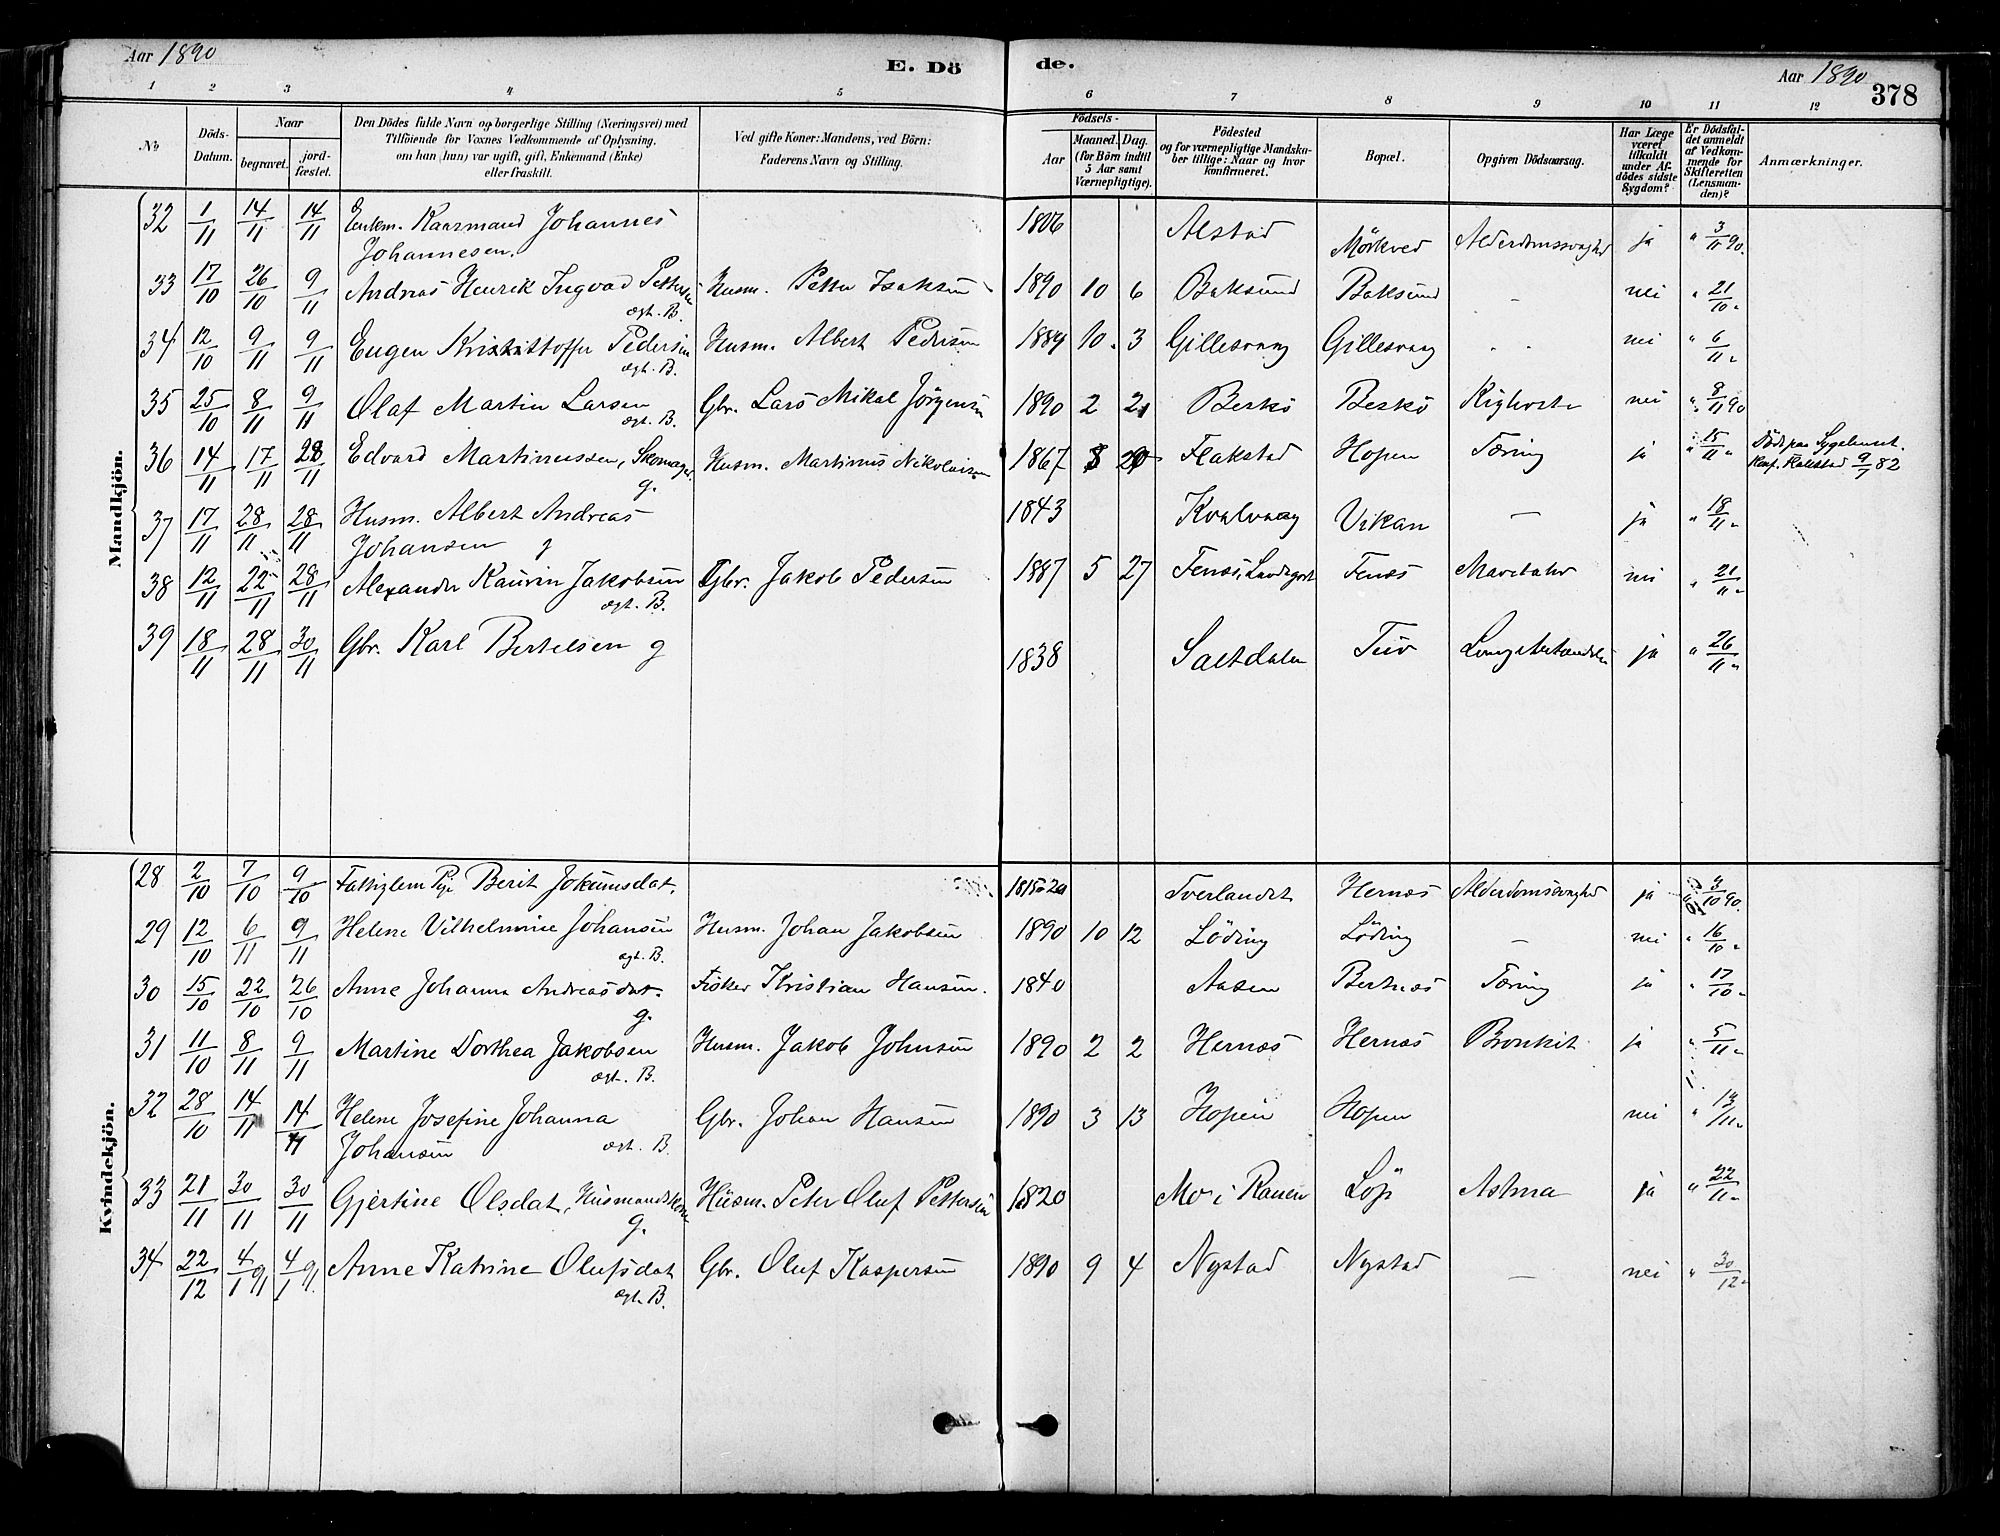 Aar 1890
E. Dö
de.
Aar 1890
378
1 2 3 4 5 6 7 8 9 10 11 12
No
Döds-Datum.
Naar
begravet.
jord-fæstet.
Den Dödes fulde Navn og borgerlige Stilling (Næringsvei) med
Tilföiende for Voxnes Vedkommende af Oplysning,
om han (hun) var ugift, gift, Enkemand (Enke)
eller fraskilt.
Ved gifte Koner: Mandens, ved Börn:
Faderens Navn og Stilling.
Födsels-
Aar
Maaned. Dag.
(for Börn indtil
5 Aar samt
Værnepligtige).
Födested
og for værnepligtige Mandska-
ber tillige: Naar og hvor
konfirmeret.
Bopæl.
Opgiven Dödsaarsag.
Har Læge
været
tilkaldt
under Af-
dödes sidste
Sygdom?
Er Dödsfal-
det anmeldt
af Vedkom-
mende for
Skifteretten
(Lensman-
den)?
Anmærkninger.
Mandkjön.
32 1/11 14/11 14/11 Enkem. Kaarmand Johannes 1806 Alstad Mörkved Alderdomssvaghed ja " 3/11 90.
Johannesen.
33 17/10 26/10 9/11 Andreas Henrik Ingvad Pettersen Husm. Petter Isaksen 1890 10 6 Baksund Baksund - nei " 21/10 "
ægt. B.
34 12/10 9/11 9/11 Eugen Kristoffer Pedersen Husm. Albert Pedersen 1889 10 3 Gillesvaag Gillesvaag nei " 6/11 "
ægt. B.
35 25/10 8/11 9/11 Olaf Martin Larsen Gbr. Lars Mikal Jörgensen 1890 2 21 Beskö Beskö Kighoste nei " 8/11 90
ægt. B.
36 14/11 17/11 28/11 Edvard Martinussen, Skomager Husm. Martinus Nikolaisen 1867 8 20 Flakstad Hopen Tæring ja " 15/11 " Död paa Sygehuset.
g. Konf. 9/7 82
37 17/11 28/11 28/11 Husm. Albert Andreas 1843 Kvalvaag Vikan - ja " 18/11 "
Johansen g
38 12/11 22/11 28/11 Alexander Kaurin Jakobsen Gbr. Jakob Pedersen 1887 5 27 Fenes, Fenes nei " 21/11 "
ægt. B.
39 18/11 28/11 30/11 Gbr. Karl Bertelsen g 1838 Saltdalen Tuv Lungebetændelse ja " 26/11 "
Kvindekjön.
28 2/10 7/10 9/10 Fattiglem Pige Berit Jokumsdat. 1815 a 20 Tverlandet Hernes Alderdomssvaghed ja " 3/10 90.
29 12/10 6/11 9/11 Helene Vilhelmine Johansen Husm. Johan Jakobsen 1890 10 12 Löding Löding - nei " 16/10 "
ægt. B.
30 15/10 22/10 26/10 Anne Johanna Andreasdat. Fisker Kristian Hansen. 1840 Aasen Bertnes Tæring ja " 17/10 "
g.
31 11/10 8/11 9/11 Martine Dorthea Jakobsen Husm. Jakob Johnsen 1890 2 2 Hernes Hernes Bronkit ja " 5/11 "
ægt. B.
32 28/10 14/11 14/11 Helene Josefine Johanna Gbr. Johan Hansen 1890 3 13 Hopen Hopen nei " 13/11 "
Johansen ægt. B.
33 21/11 30/11 30/11 Gjertine Olsdat, Husmandskone Husm. Peter Oluf Pettersen 1820 Mo i Ranen Löp Astma ja " 22/11 "
g.
34 22/12 4/1 91 4/1 91. Anne Katrine Olufsdat Gbr. Oluf Kaspersen 1890 9 4 Nystad Nystad - nei " 30/12 "
ægt. B.